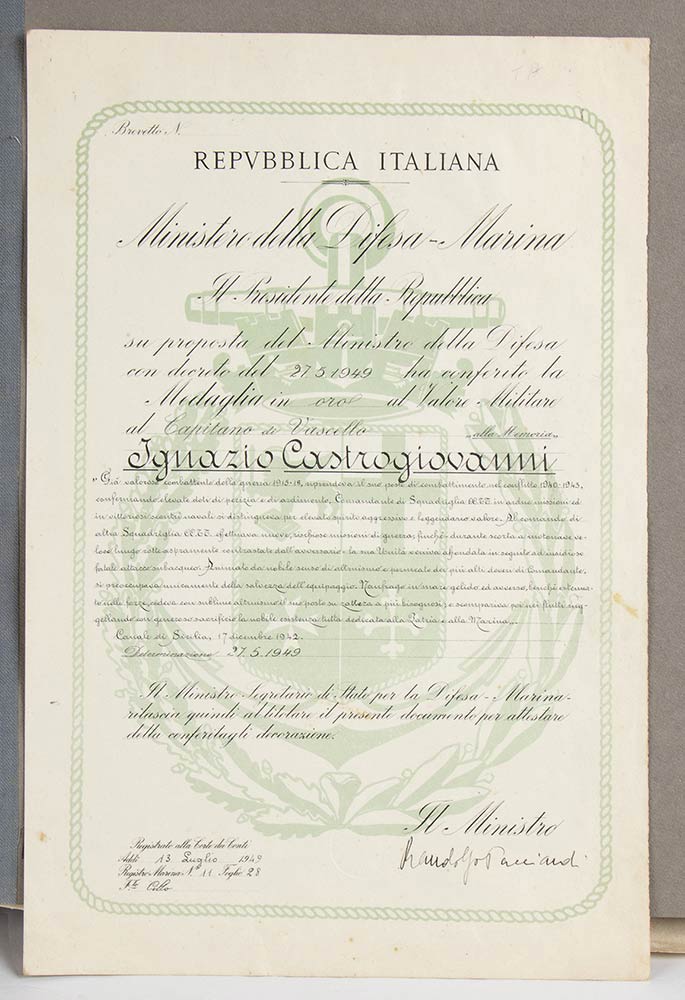 Brevetto N.
REPVBBLICA ITALIANA
Ministero della Difesa - Marina
Il Presidente della Repubblica
su proposta del Ministro della Difesa
con decreto del 27.5.1949 ha conferito la
Medaglia in oro al Valore Militare
al Capitano di Vascello "alla Memoria"
Ignazio Castrogiovanni
"Già valoroso combattente della guerra 1915-18, riprendeva il suo posto di combattimento nel conflitto 1940-1943,
confermando elevate doti di perizia e di ardimento. Comandante di Squadriglia CC.TT. in ardue missioni ed
in vittoriosi scontri navali si distingueva per elevato spirito aggressivo e leggendario valore. Al comando di
altra Squadriglia CC.TT. effettuava nuove, rischiose missioni di guerra; finchè durante scorta a motonave ve-
loce lungo rotte aspramente contrastate dall'avversario la sua Unità veniva affondata in seguito ad insidioso e
fatale attacco subacqueo. Animato da nobile senso di altruismo e permeato dei più alti doveri di Comandante,
si preoccupava unicamente della salvezza dell'equipaggio. Naufrago in mare gelido ed avverso, benchè estenua-
to nelle forze, cedeva con sublime altruismo il suo posto su zattera a più bisognosi; e scompariva poi nei flutti sug-
gellando con generoso sacrificio la nobile esistenza tutta dedicata alla Patria e alla Marina".
Canale di Sicilia, 17 dicembre 1942.
Determinazione 27.5.1949
Il Ministro Segretario di Stato per la Difesa - Marina -
rilascia quindi al titolare il presente documento per attestare
della conferitagli decorazione.
Il Ministro
Randolfo Pacciardi
Registrato alla Corte dei Conti
Addì 13 Luglio 1949
Registro Marina N° 11 Foglio 28
F.to